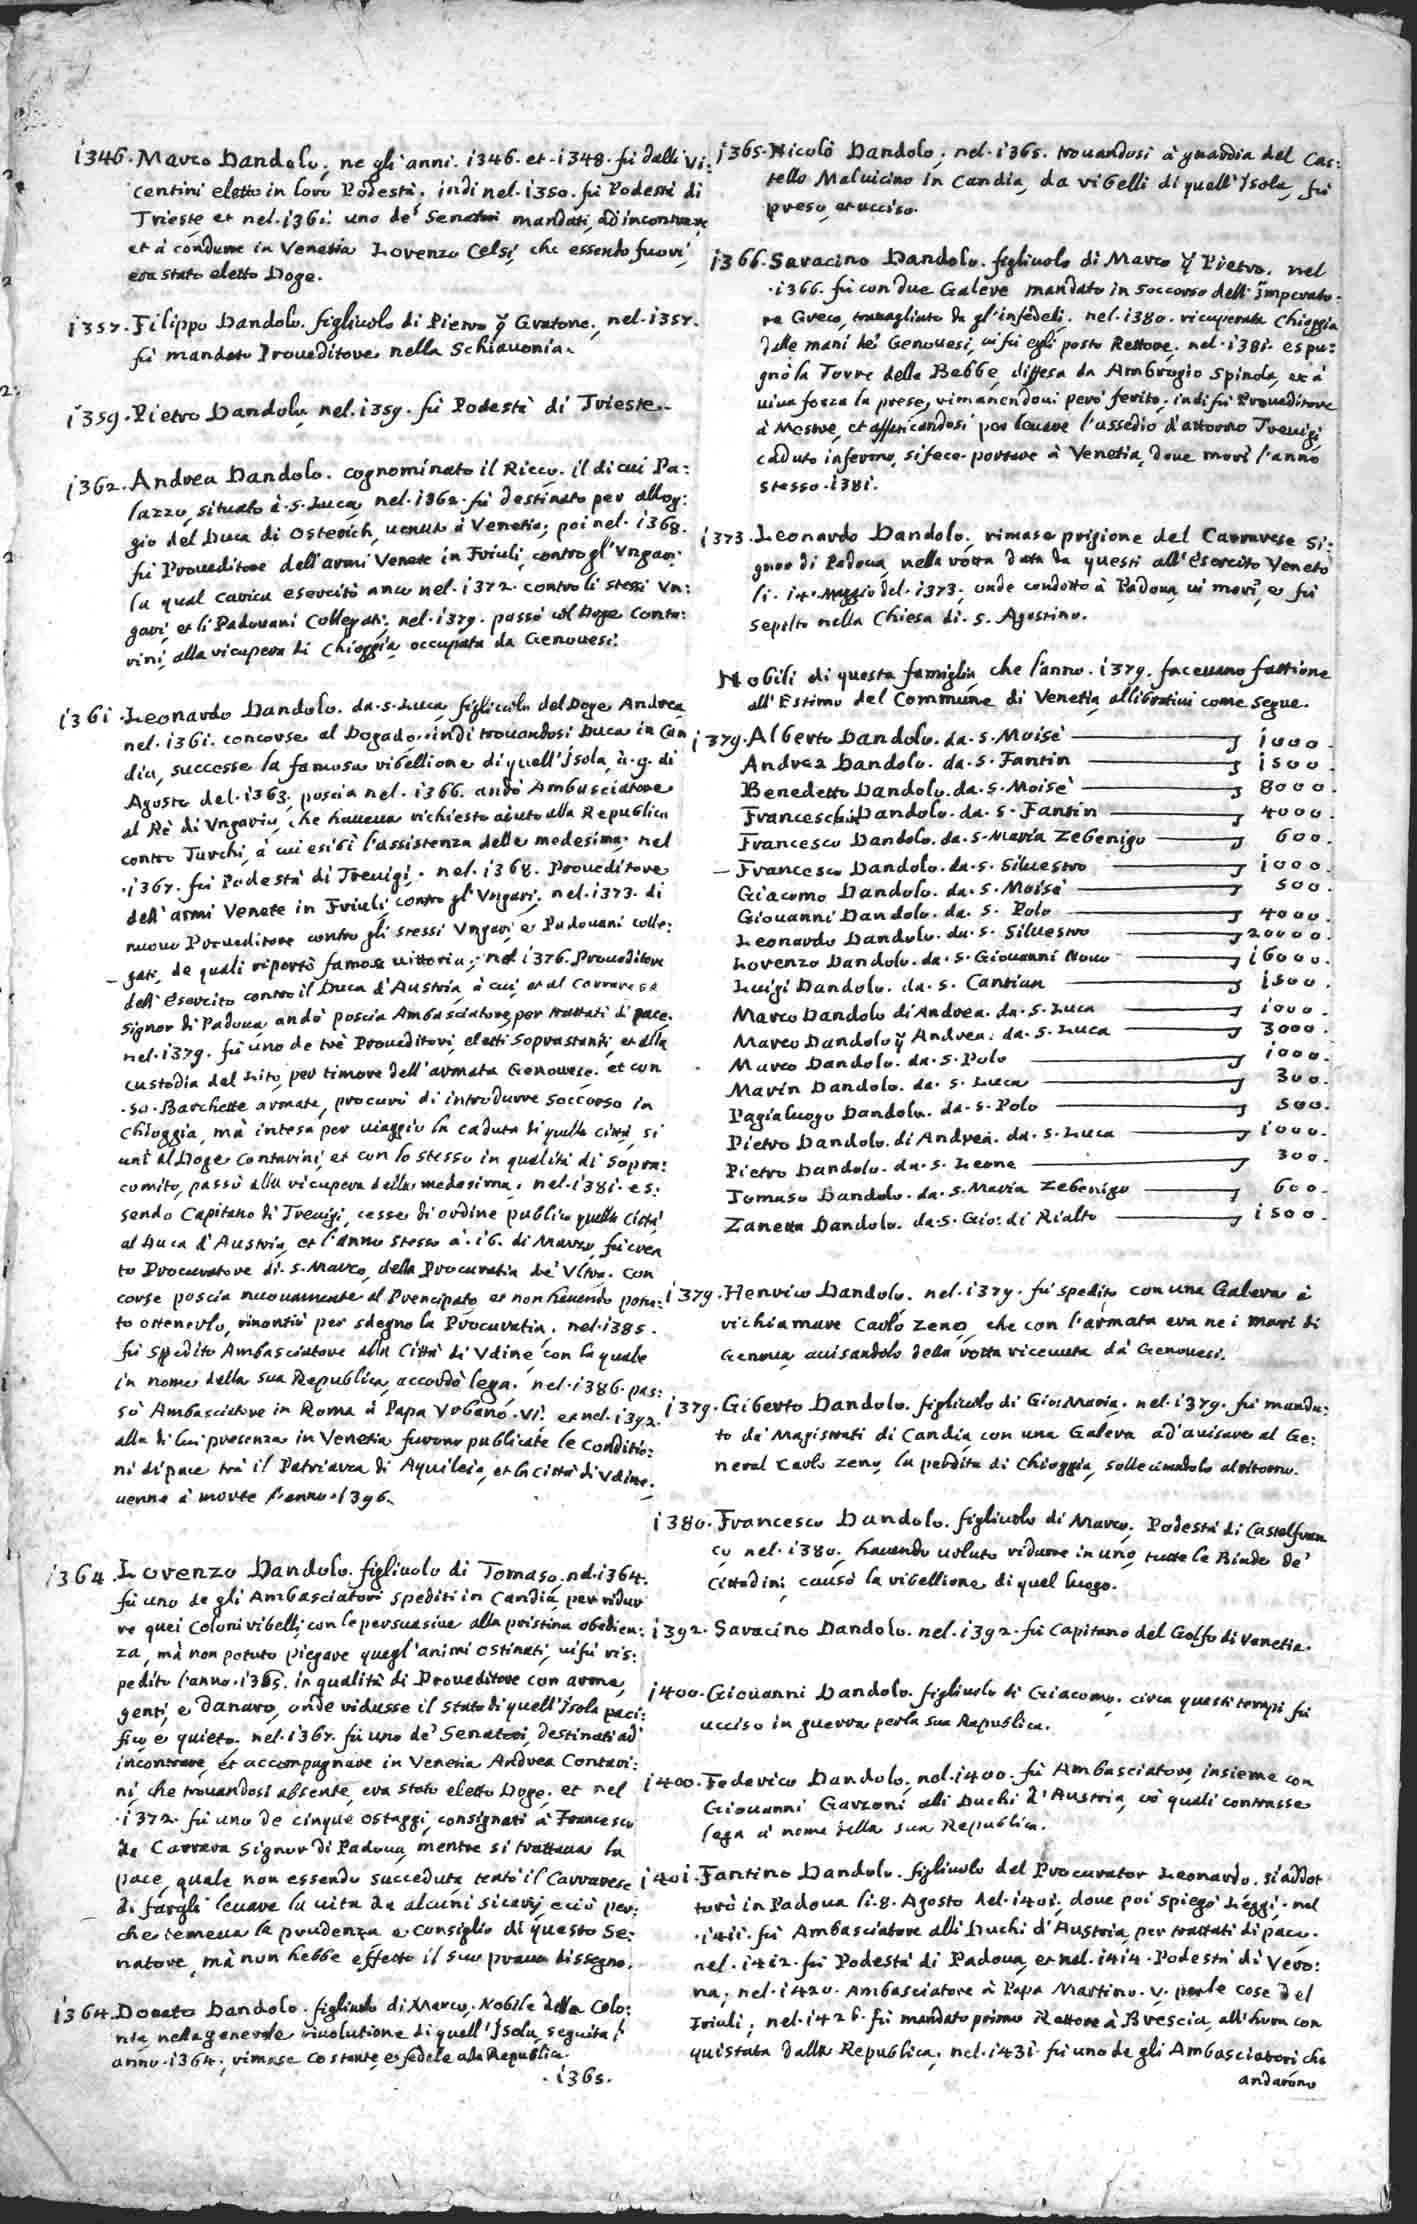 1346. Marco Dandolo, ne gli anni. 1346. et. 1348. fù dalli Vi:
centini eletto in loro Podestà, indi nel. 1350. fù Podestà di
Trieste, et nel. 1361. uno de' Senatori mandati, ad incontrare
et à condurre in Venetia Lorenzo Celsi, che essendo fuori,
era stato eletto Doge.
1357. Filippo Dandolo. figliuolo di Pietro q Gratone, nel. 1357.
fù mandato Proueditore nella Schiauonia.
1359. Pietro Dandolo, nel. 1359. fù Podestà di Trieste.
1362. Andrea Dandolo. cognominato il Ricco. il di cui Pa:
lazzo, situato à. S. Luca, nel. 1362. fù destinato per allog:
gio del Duca di Osterich, uenuto à Venetia; poi nel. 1368.
fù Proueditore dell'armi Venete in Friuli, contro gl'Vngari:
la qual carica esercitò anco nel. 1372. contro li stessi Vn:
gari, et li Padouani Collegati. nel. 1379. passò col Doge Conta:
rini, alla ricupera di Chioggia, occupata da Genouesi.
1361. Leonardo Dandolo. da. S. Luca, figliuolo del Doge Andrea,
nel. 1361. concorse al Dogado. indi trouandosi Duca in Can
dia, successe la famosa ribellione di quell'Isola, à. 9. di
Agosto del. 1363. poscia nel. 1366. andò Ambasciatore
al Rè di Vngaria, che haueua richiesto aiuto alla Republica
contro Turchi, à cui esibì l'assistenza della medesima. nel
. 1367. fù Podestà di Treuigi. nel. 1368. Proueditore
dell'armi Venete in Friuli, contro gl'Vngari. nel. 1373. di
nuouo Proueditore contro gli stessi Vngari, e Padouani colle:
gati, de quali riportò famosa uittoria; nel 1376. Proueditore
dell'Esercito contro il Duca d'Austria, à cui, et al Carrarese
Signor di Padoua, andò poscia Ambasciatore, per trattati di pace.
nel. 1379. fù uno de trè Proueditori, eletti soprastanti, et alla
custodia del Lito, per timore dell'armata Genouese. et con
. 50. Barchette armate, procurò di introdurre soccorso in
Chioggia, mà intesa per uiaggio la caduta di quella città, si
unì al Doge Contarini, et con lo stesso in qualità di sopra:
comito, passò alla ricupera della medesima. nel. 1381. es:
sendo Capitano di Treuigi, cesse di ordine publico quella città
al Duca d'Austria, et l'anno stesso à. 16. di Marzo, fù crea
to Procuratore di. S. Marco, della Procuratia de' Vltra. con
corse poscia nuouamente al Prencipato, et non hauendo potu:
to ottenerlo, rinontiò per sdegno la Procuratia. nel. 1385.
fù spedito Ambasciatore alla Città di Vdine, con la quale
in nome della sua Republica, accordò lega. nel. 1386. pas:
sò Ambasciatore in Roma à Papa Vrbano. VI. et nel. 1392.
alla di lui presenza in Venetia furono publicate le conditio:
ni di pace trà il Patriarca di Aquileia, et la Città di Vdine.
uenne à morte l'anno. 1396.
1364. Lorenzo Dandolo. figliuolo di Tomaso. nel. 1364.
fù uno de gli Ambasciatori spediti in Candia, per ridur
re quei Coloni ribelli, con le persuasiue alla pristina obedien:
za, mà non potuto piegare quegl'animi ostinati, ui fù ris:
pedito l'anno. 1365. in qualità di Proueditore con arme,
genti, e danaro, onde ridusse il stato di quell'Isola paci:
fico, e quieto. nel. 1367. fù uno de' Senatori, destinati ad
incontrare, et accompagnare in Venetia Andrea Contari:
ni, che trouandosi absente, era stato eletto Doge. et nel
. 1372. fù uno de cinque ostaggi, consignati à Francesco
da Carrara Signor di Padoua, mentre si trattaua la
pace, quale non essendo succeduta tentò il Carrarese
di fargli leuare la uita da alcuni sicarij, e ciò per:
che temeua la prudenza e consiglio di questo Se:
natore, mà non hebbe effetto il suo prauo dissegno.
1364. Donato Dandolo. figliuolo di Marco, Nobile della Colo:
nia, nella generale riuolutione di quell'Isola, seguita l'
anno. 1364. rimase costante, e fedele alla Republica.
. 1365.
1365. Nicolò Dandolo, nel. 1365. trouandosi à guardia del Cas:
tello Maluicino in Candia, da ribelli di quell'Isola, fù
preso, et ucciso.
1366. Saracino Dandolo. figliuolo di Marco q Pietro. nel
. 1366. fù con due Galere mandato in soccorso dell'Imperato:
re Greco, trauagliato da gl'infedeli. nel. 1380. ricuperata Chioggia
dalle mani de' Genouesi, ui fù egli posto Rettore. nel. 1381. espu:
gnò la Torre delle Bebbe, diffesa da Ambrogio Spinola, et à
uiua forza la prese, rimanendoui però ferito, indi fù Proueditore
à Mestre, et affaticandosi per leuare l'assedio d'attorno Treuigi,
caduto infermo, si fece portare à Venetia, doue morì l'anno
stesso. 1381.
1373. Leonardo Dandolo, rimase prigione del Carrarese Si:
gnor di Padoua, nella rotta data da questi all'Esercito Veneto
li. 14. Maggio del. 1373. onde condotto à Padoua, ui morì, e fù
sepolto nella Chiesa di. S. Agostino.
Nobili di questa famiglia, che l'anno. 1379. faceuano fattione
all'Estimo del Commune di Venetia, allibrati come segue.
1379. Alberto Dandolo. da. S. Moisè 1000.
Andrea Dandolo. da. S. Fantin 1500.
Benedetto Dandolo. da. S. Moisè 8000.
Franceschin Dandolo. da. S. Fantin 4000.
Francesco Dandolo. da. S. Maria Zebenigo 600.
Francesco Dandolo. da. S. Siluestro 1000.
Giacomo Dandolo. da. S. Moisè 500.
Giouanni Dandolo. da. S. Polo 4000.
Leonardo Dandolo. da. S. Siluestro 20000.
Lorenzo Dandolo. da. S. Giouanni Nouo 16000.
Luigi Dandolo. da. S. Cantian 1500.
Marco Dandolo di Andrea. da. S. Luca 1000.
Marco Dandolo q Andrea. da. S. Luca 3000.
Marco Dandolo. da. S. Polo 1000.
Marin Dandolo. da. S. Luca 300.
Pagialuogo Dandolo. da. S. Polo 500.
Pietro Dandolo. di Andrea. da. S. Luca 1000.
Pietro Dandolo. da. S. Leone 300.
Tomaso Dandolo. da. S. Maria Zebenigo 600.
Zanetto Dandolo. da. S. Gio: di Rialto 1500.
1379. Henrico Dandolo. nel. 1379. fù spedito con una Galera à
richiamare Carlo Zeno, che con l'armata era ne i mari di
Genoua, auisandolo della rotta riceuuta dà Genouesi.
1379. Giberto Dandolo. figliuolo di Gio: Maria. nel. 1379. fù manda:
to da' Magistrati di Candia, con una Galera ad auisare al Ge:
neral Carlo Zeno, la perdita di Chioggia, sollecitandolo al ritorno.
1380. Francesco Dandolo. figliuolo di Marco, Podestà di Castelfran
co nel. 1380. hauendo uoluto ridurre in uno, tutte le Biade de'
Cittadini, causò la ribellione di quel luogo.
1392. Saracino Dandolo. nel. 1392. fù Capitano del Golfo di Venetia.
1400. Giouanni Dandolo. figliuolo di Giacomo, circa questi tempi fù
ucciso in guerra per la sua Republica.
1400. Federico Dandolo, nel. 1400. fù Ambasciatore, insieme con
Giouanni Garzoni alli Duchi d'Austria, cò quali contrasse
lega à nome della sua Republica.
1401. Fantino Dandolo. figliuolo del Procurator Leonardo. si addot
torò in Padoua li. 8. Agosto del. 1401. doue poi spiegò Leggi. nel
. 1411. fù Ambasciatore alli Duchi d'Austria, per trattati di pace.
nel. 1412. fù Podestà di Padoua, et nel. 1414. Podestà di Vero:
na, nel. 1420. Ambasciatore à Papa Martino. V. per le cose del
Friuli, nel. 1426. fù mandato primo Rettore à Brescia, all'hora con
quistata dalla Republica, nel. 1431. fù uno de gli Ambasciatori, che
andarono